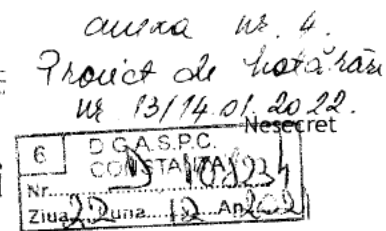 anexa nr. 4.
Proiect de hotărâre
nr 13/14.01.2022.
Nesecret
6 D.G.A.S.P.C.
CONSTANȚA
Nr.
Ziua 22 Luna 12 An 2021